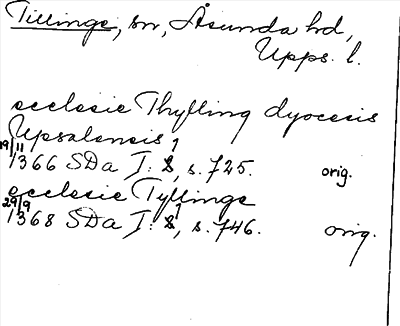 Tillinge, sn, Åsunda hd,
Upps. l.
ecclesie Thylling dyocesis
Upsalensis
19/11 1366 SDa I: 1, s. 725. orig.
ecclesie Tyllinge
29/9 1368 SDa I: 1, s. 746. orig.